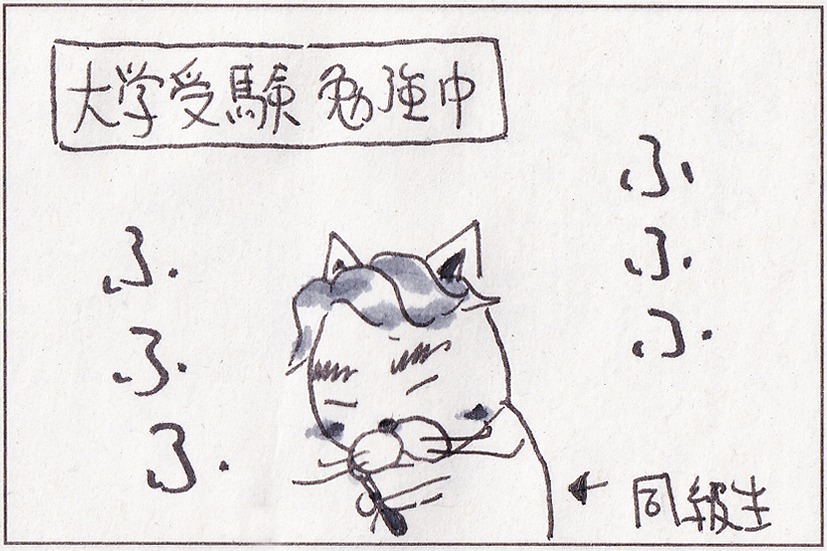 大学受験 勉強中
ふ
ふ
ふ
ふ
ふ
ふ
同級生